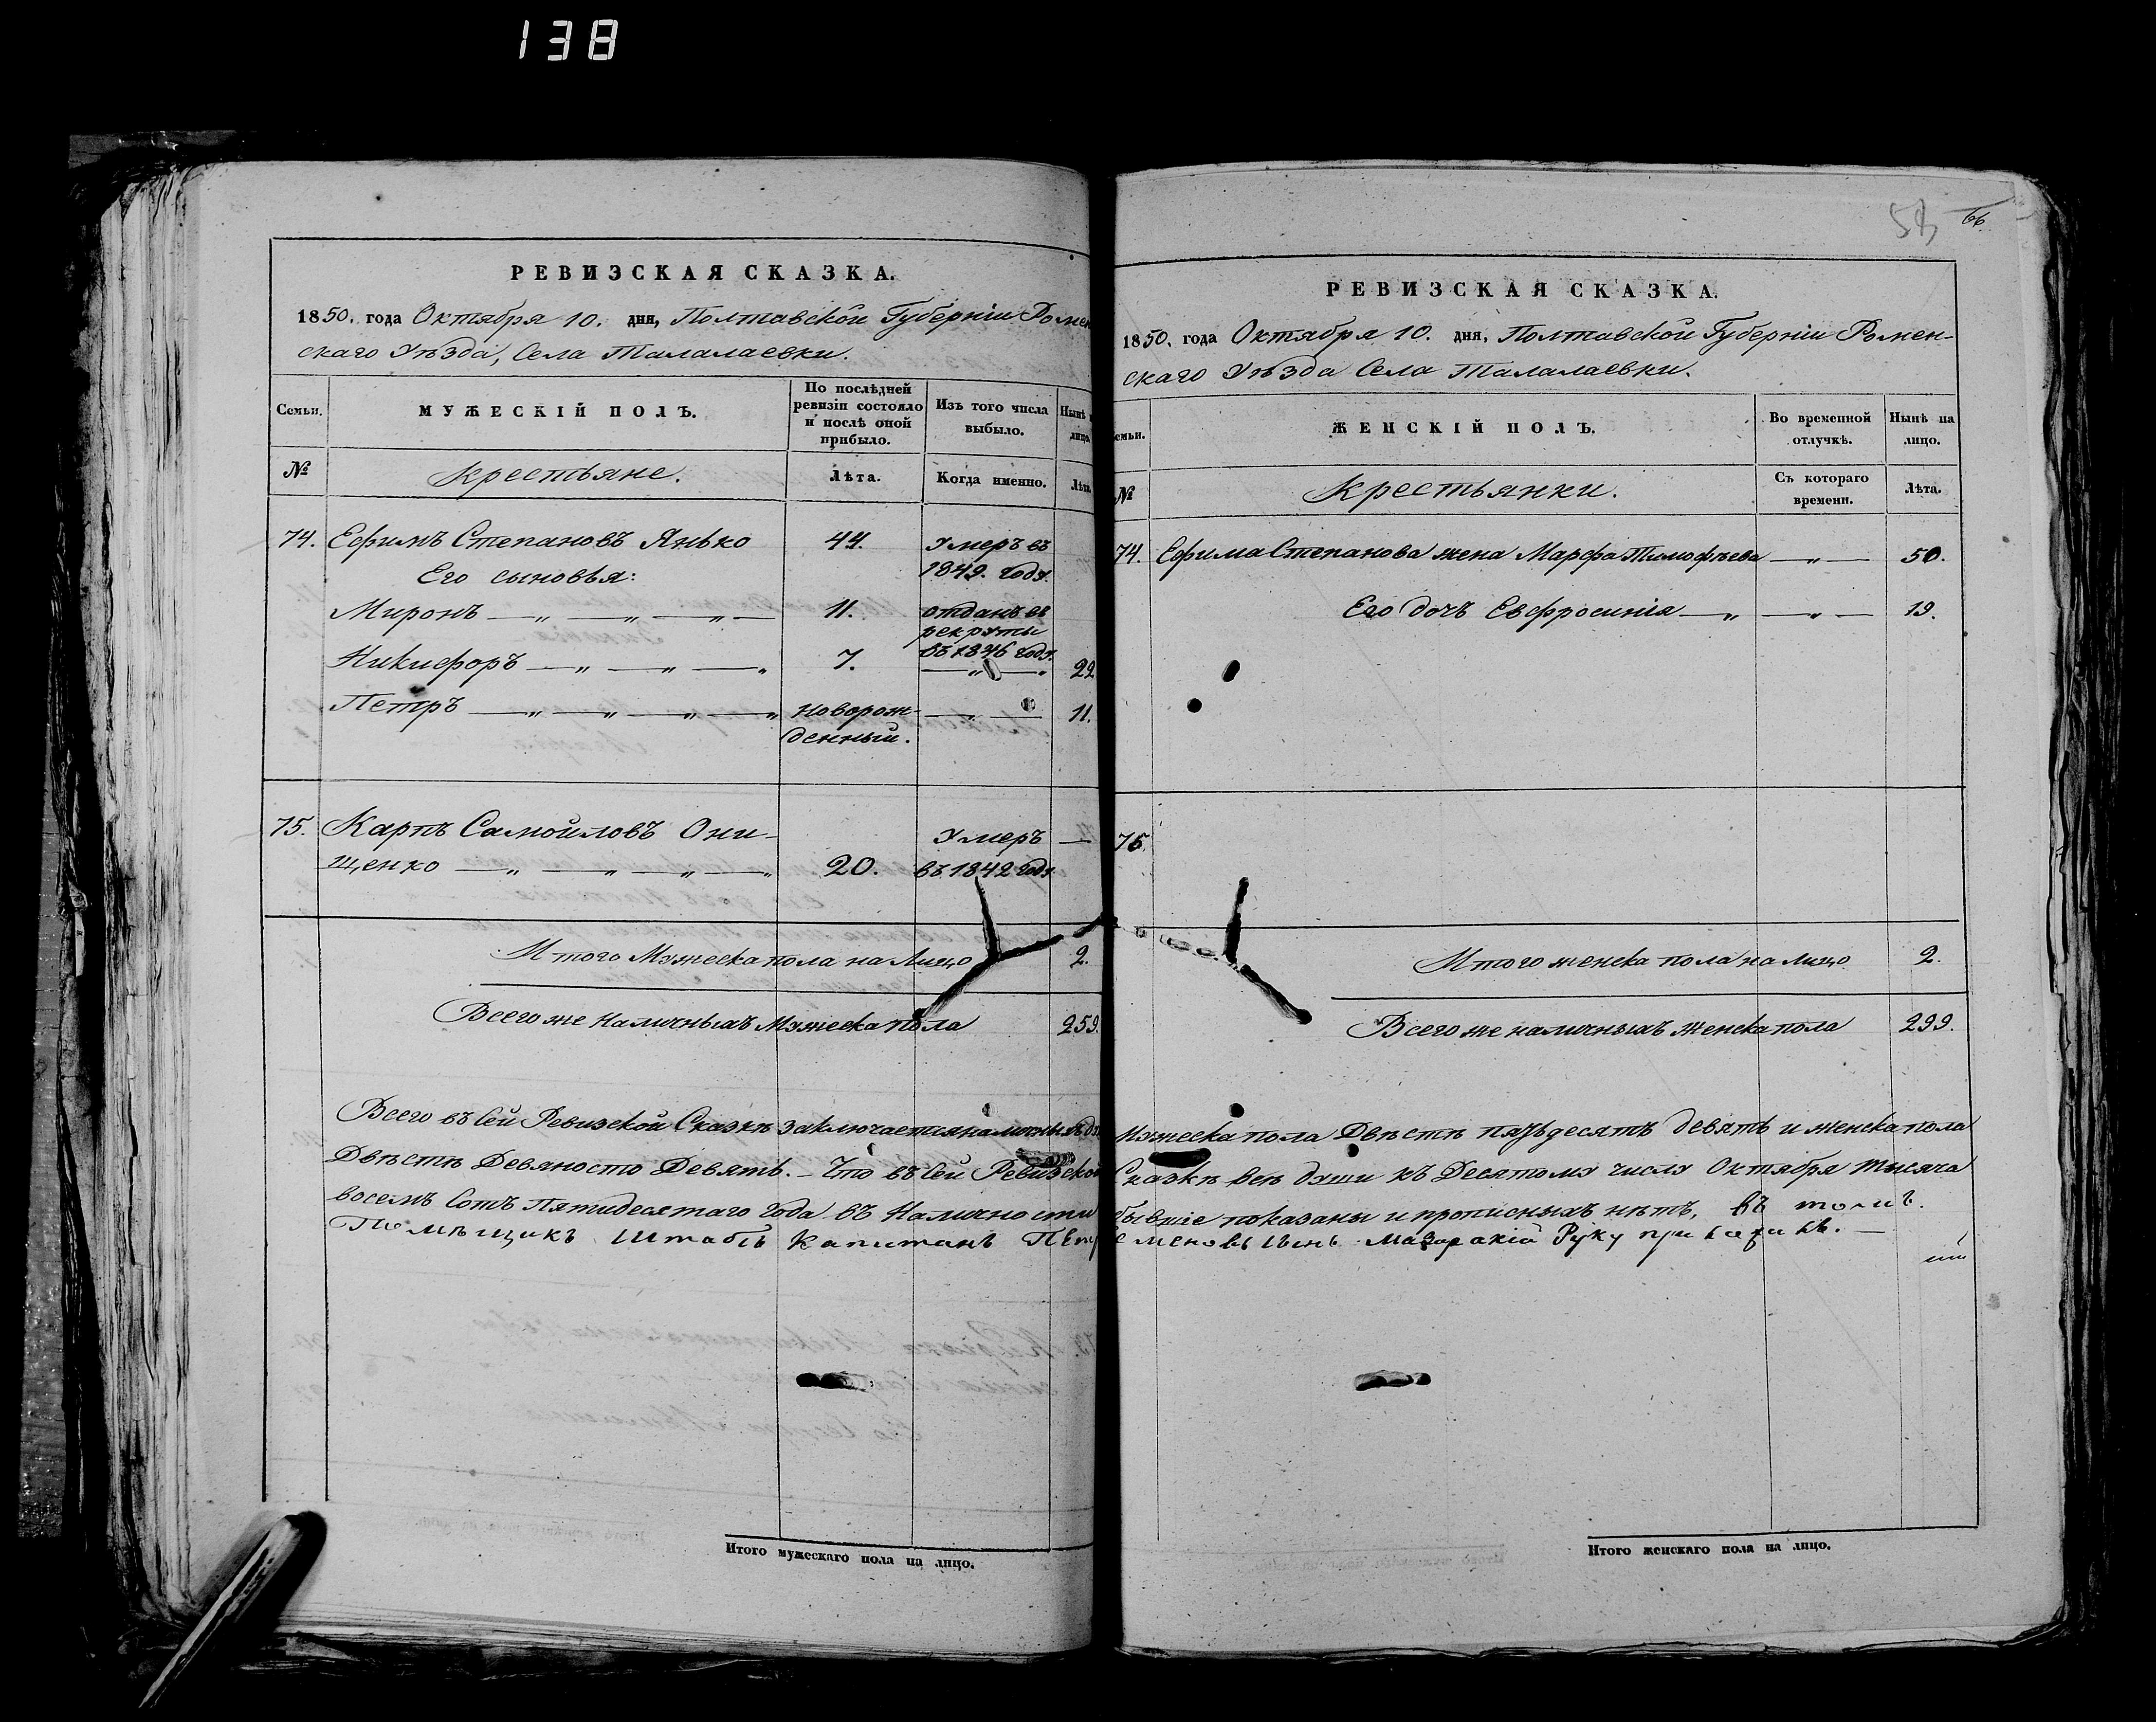 138
РЕВИЗСКАЯ СКАЗКА.
1850. года Октября 10. дня, Полтавской Губерніи Ромен
скаго Уѣзда, Села Талалаевки.
Семьи.
МУЖЕСКІЙ ПОЛЪ.
По послѣдней ревизіи состояло и послѣ оной прибыло.
Изъ того числа выбыло.
Нынѣ
лицо.
№
Крестьяне.
Лѣта.
Когда именно.
Лѣта.
74. Ефимъ Степановъ Янько 44. Умеръ въ
Его сыновья: 1849. году.
Миронъ — „ — „ — „ — 11. отданъ въ
рекруты
въ 1846 году.
Никифоръ — „ — „ — „ 7. — „ — „ 22
Петръ — „ — „ — „ — „ Новорож- — „ — 11.
денный.
75. Карпъ Самойловъ Они- Умеръ —
щенко — „ — „ — „ — „ 20. въ 1842 году.
Итого Мужеска пола на Лицо 2.
Всего же наличныхъ Мужеска пола 259.
58 66.
РЕВИЗСКАЯ СКАЗКА.
1850. года Октября 10. дня, Полтавской Губерніи Ромен-
скаго Уѣзда Села Талалаевки.
семьи.
ЖЕНСКІЙ ПОЛЪ.
Во временной отлучкѣ.
Нынѣ на лицо.
№
Крестьянки.
Съ котораго времени.
Лѣта.
74. Ефима Степанова жена Марфа Тимофѣева — „ — 50.
Его дочь Евфросинія — „ — „ — 19.
75
Итого женска пола на лицо 2.
Всего же наличныхъ женска пола 299.
Всего въ Сей Ревизской Сказкѣ заключается наличныхъ Мужеска пола Двѣсти пятьдесятъ девять и женска пола
Двѣсти Девяносто Девять. — Что въ Сей Ревизской Сказкѣ всѣ души къ Десятому числу Октября тысяча
восемь Сотъ Пятидесятаго года въ Наличности бывшіе показаны и прописныхъ нѣтъ, въ томъ.
Помѣщикъ Штабсъ Капитанъ Мазаракій Руку
Итого мужескаго пола на лицо.
Итого женскаго пола на лицо.